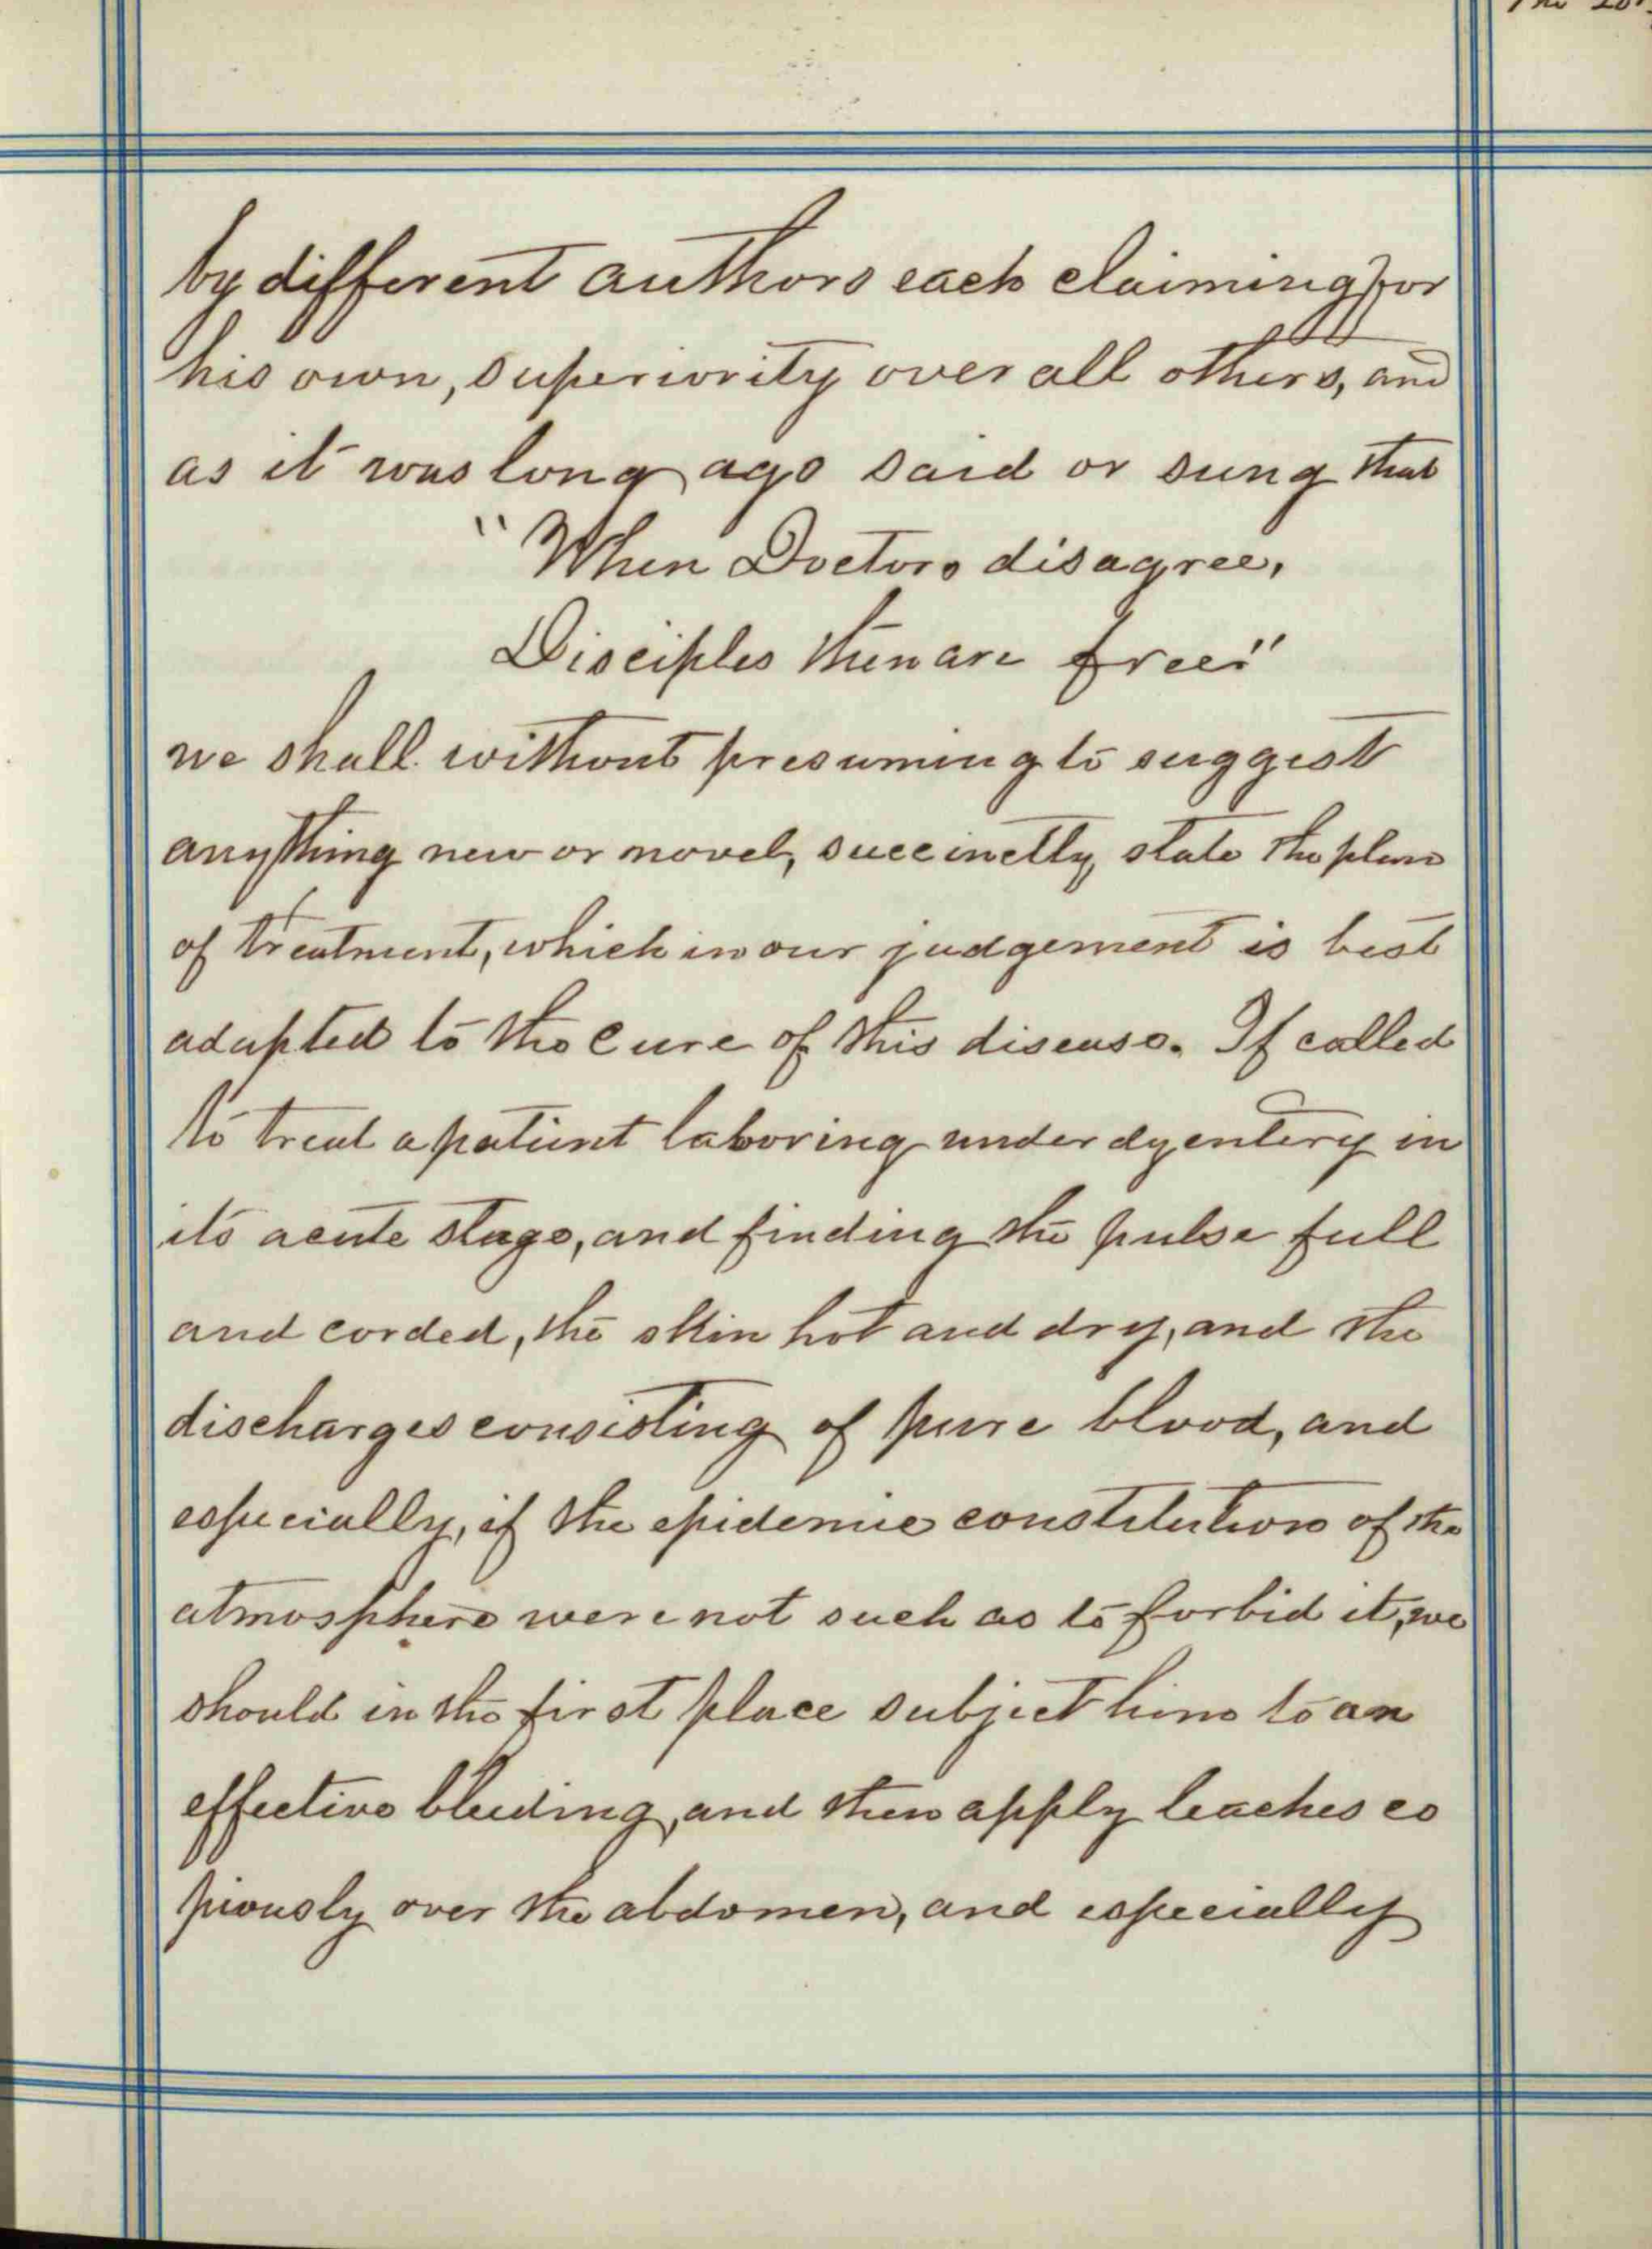 by different authors each claiming for
his own, superiority over all others, and
as it was long ago said or sung that
"When Doctors disagree,
Disciples then are free."
we shall without presuming to suggest
anything new or novel, succinctly, state the plan
of treatment, which in our judgement is best
adapted to the cure of this disease. If called
to treat a patient laboring under dyentery in
its acute stage, and finding the pulse full
and corded, the skin hot and dry, and the
discharges consisting of pure blood, and
especially, if the epidemic constitution of the
atmosphere were not such as to forbid it, we
should in the first place subject him to an
effective bleeding, and then apply leaches co
piously over the abdomen, and especially